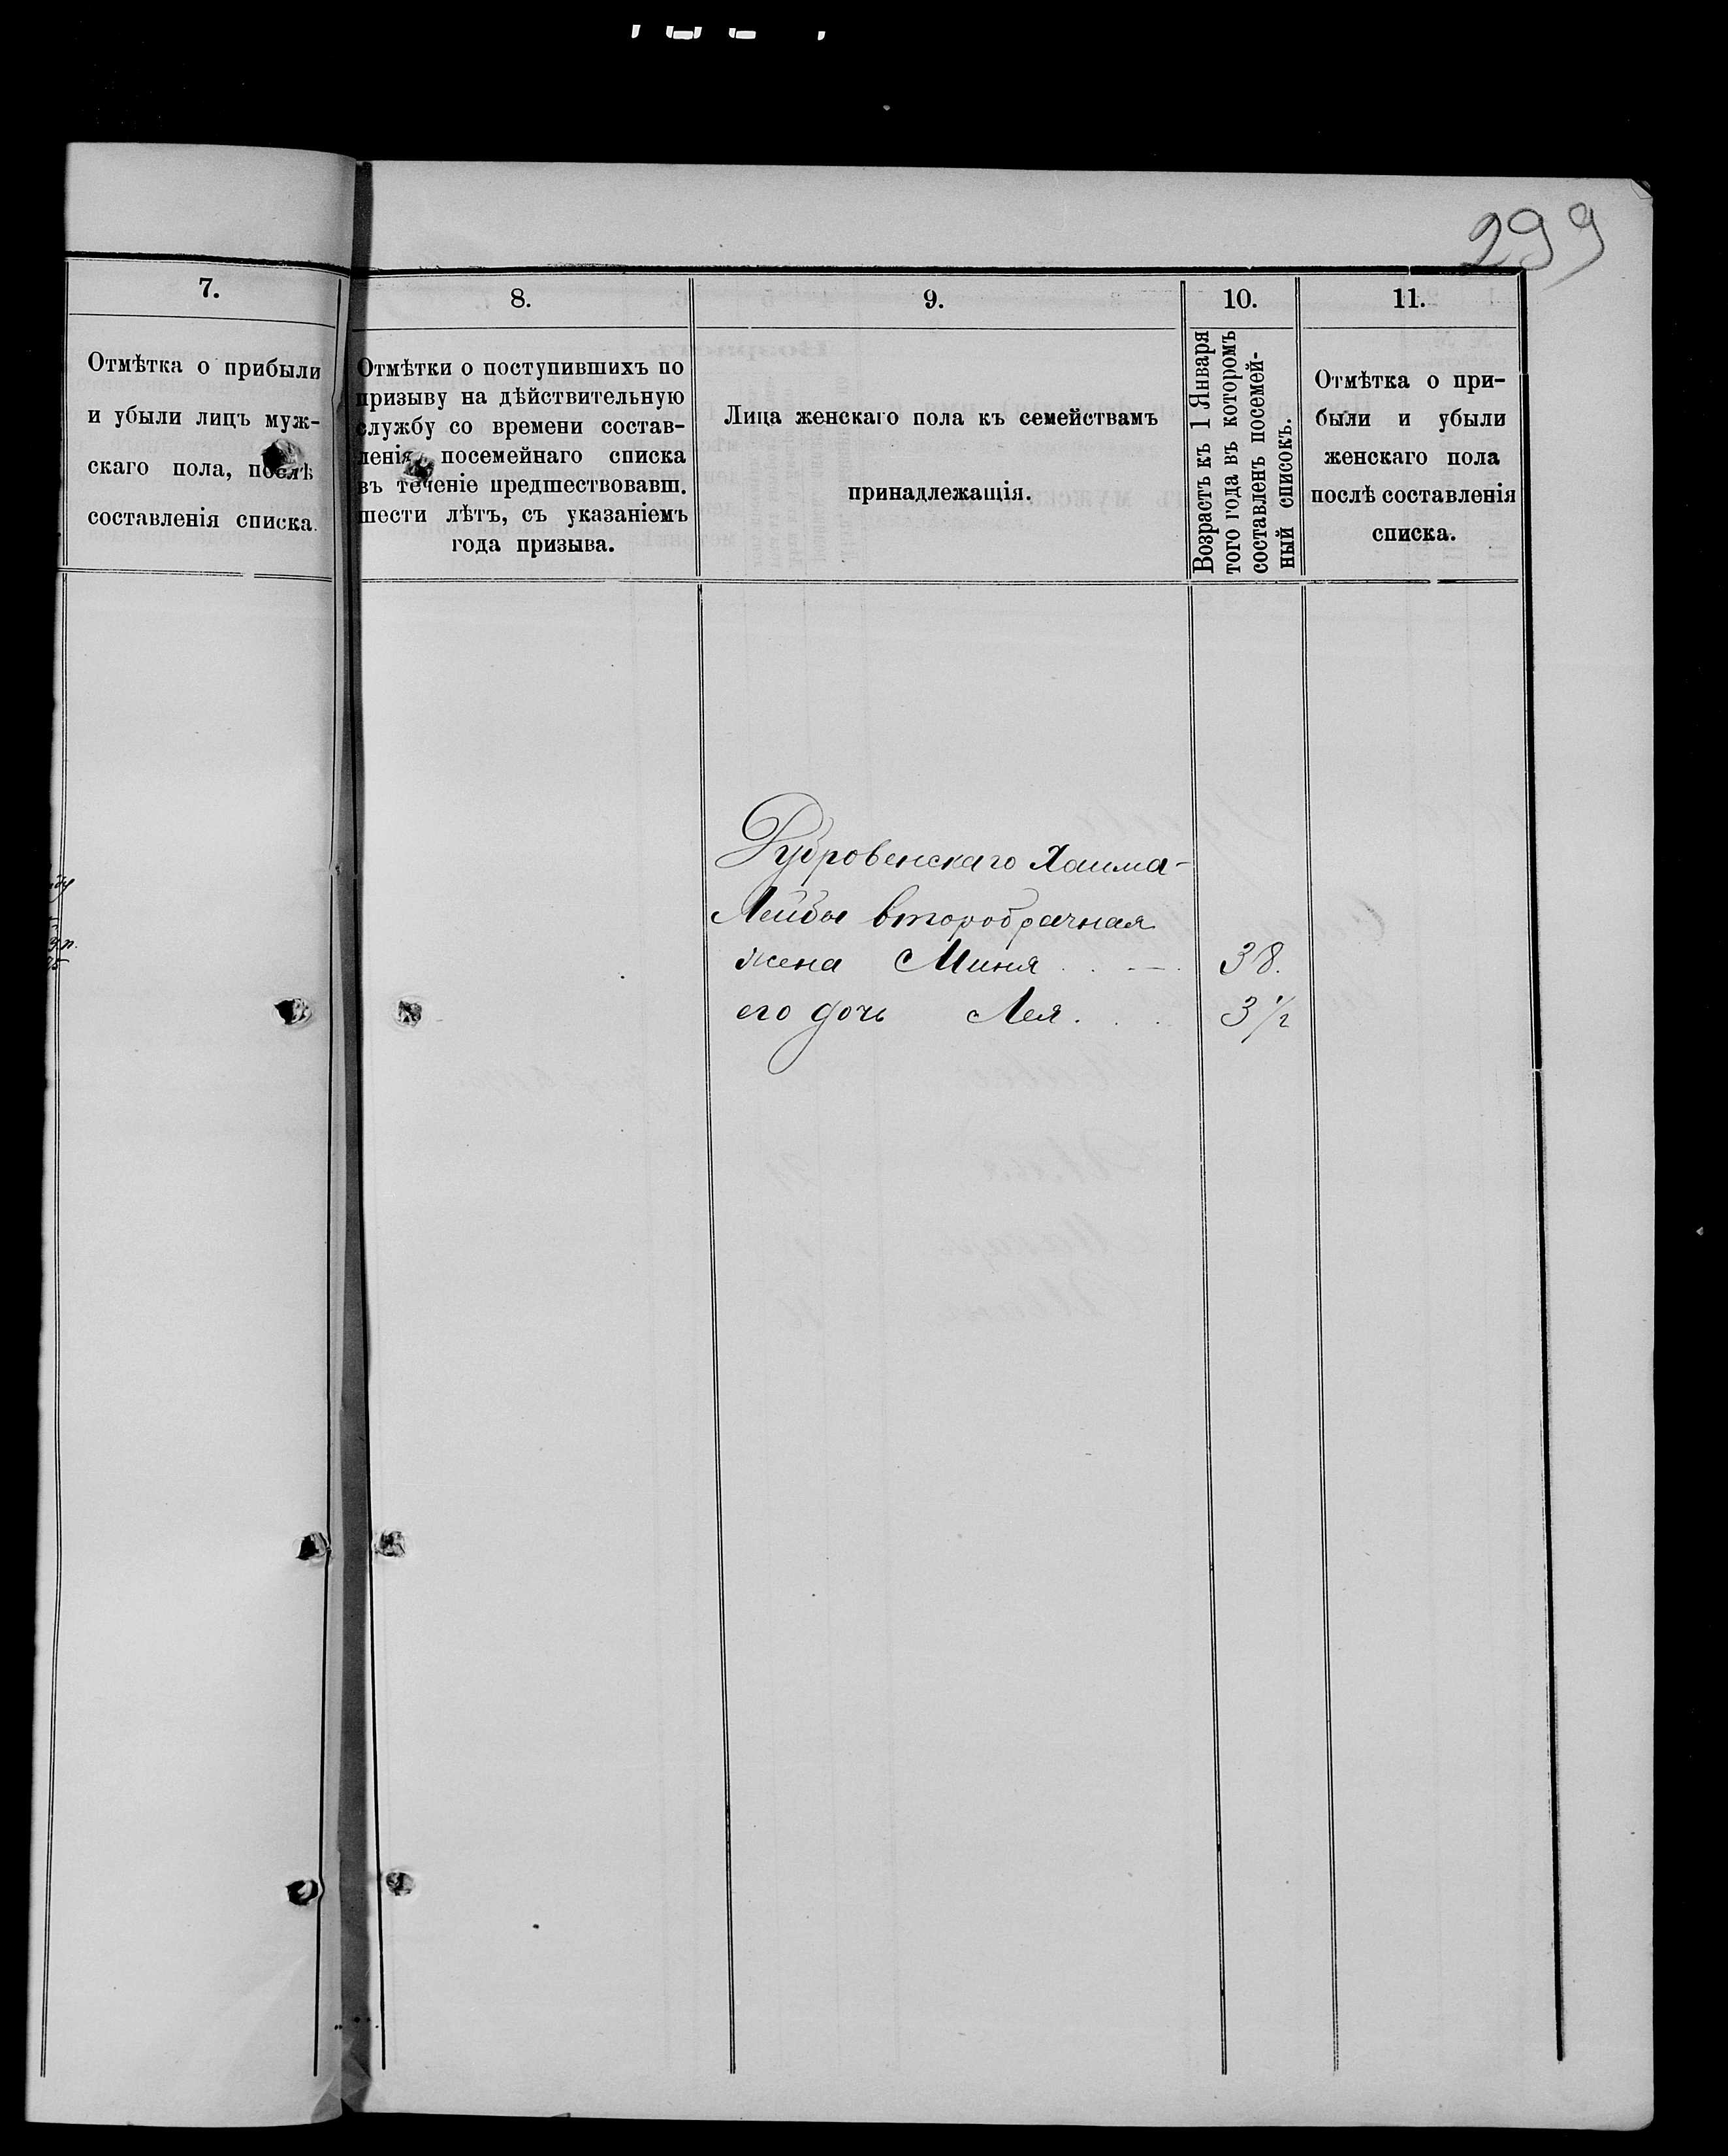 299
7.
Отмѣтка о прибыли
и убыли лицъ муж-
скаго пола, послѣ
составленія списка.
8.
Отмѣтки о поступившихъ по
призыву на дѣйствительную
службу со времени состав-
ленія посемейнаго списка
въ теченіе предшествовавш.
шести лѣтъ, съ указаніемъ
года призыва.
9.
Лица женскаго пола къ семействамъ
принадлежащія.
10.
Возрастъ къ 1 Января
того года въ которомъ
составленъ посемей-
ный списокъ.
11.
Отмѣтка о при-
были и убыли
женскаго пола
послѣ составленія
списка.
Дубровенскаго Хаима-
Лейбы второбрачная
жена Миня . . — . 38.
его дочь Лея . . . 3 1/2